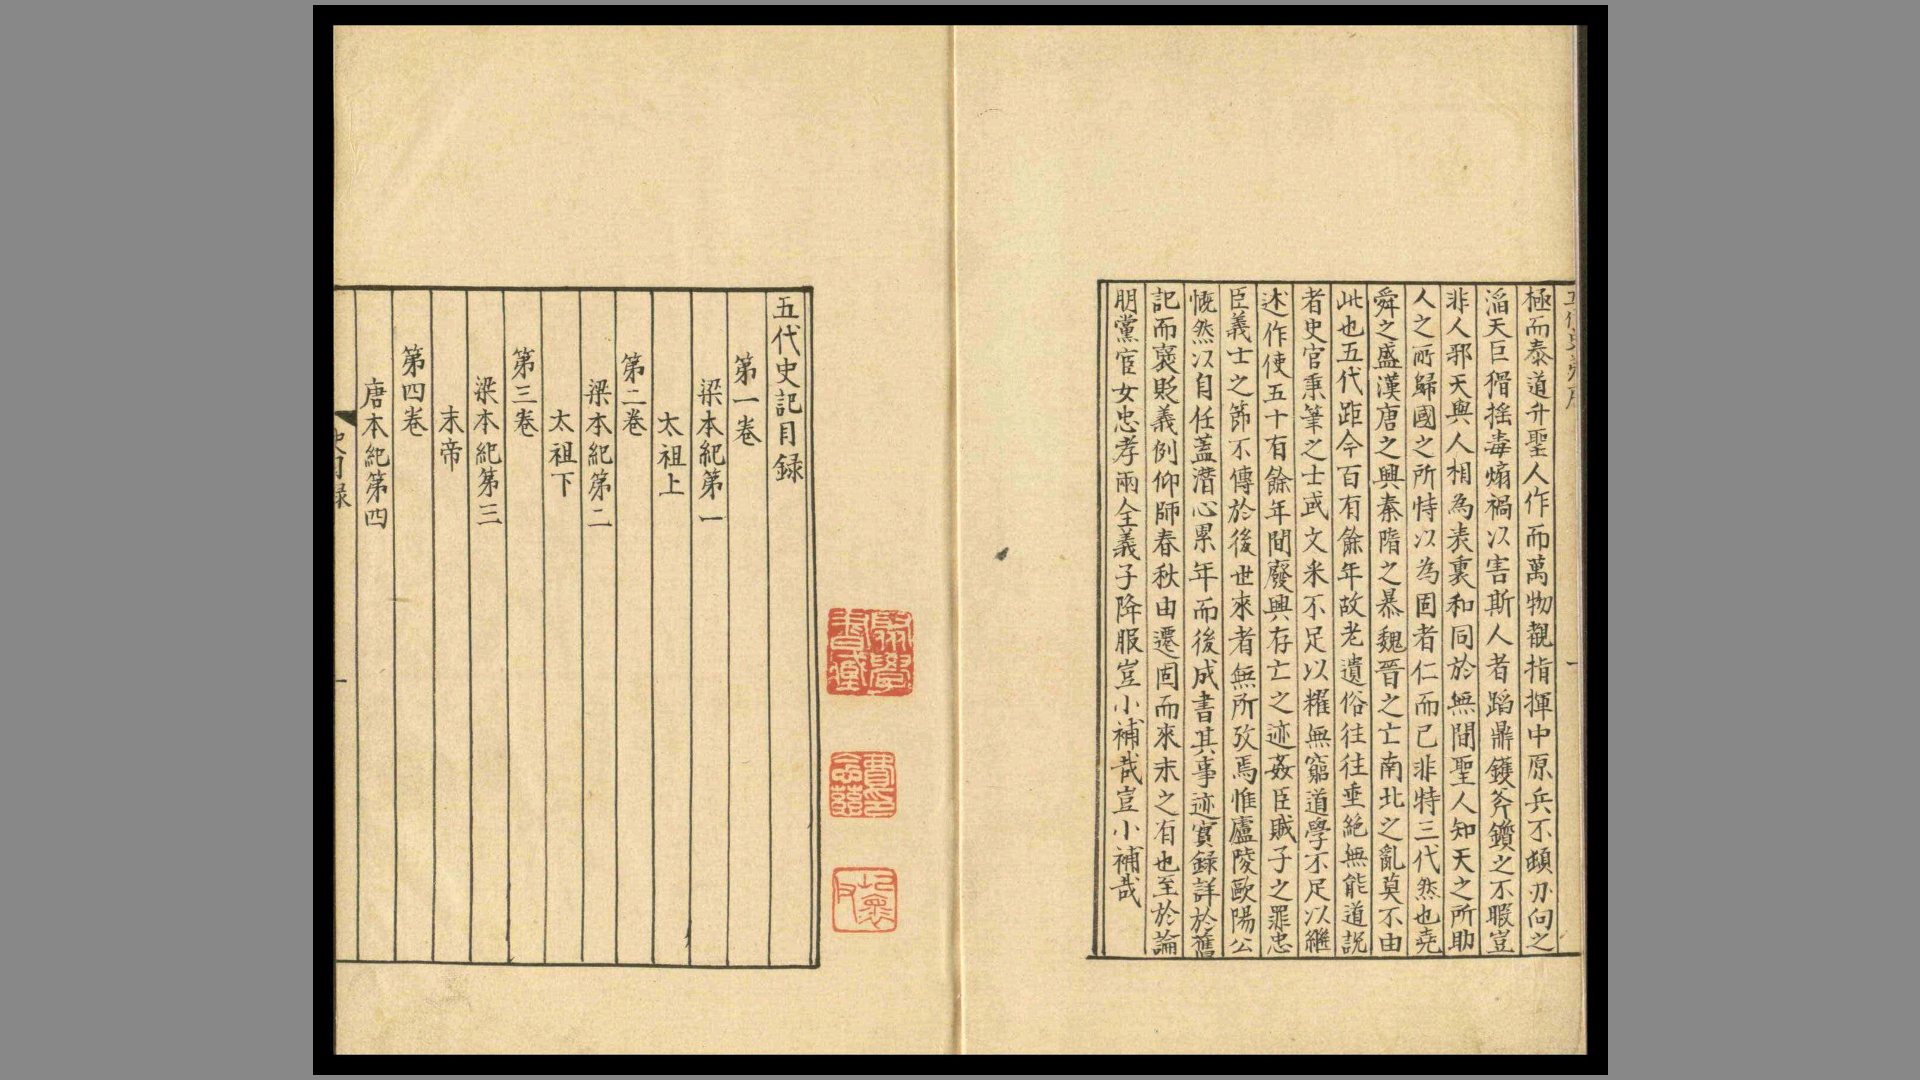 極而泰道升聖人作而萬物覩指揮中原兵不頓刃向之
滔天巨猾搖毒煽禍以害斯人者蹈鼎鑊斧鑕之不暇豈
非人邪天與人相為表裏和同於無間聖人知天之所助
人之所歸國之所恃以為固者仁而已非特三代然也堯
舜之盛漢唐之興秦隋之暴魏晉之亡南北之亂莫不由
此也五代距今百有餘年故老遺俗往往垂絶無能道說
者史官秉筆之士或文采不足以耀無窮道學不足以繼
述作使五十有餘年間廢興存亡之迹姦臣賊子之罪忠
臣義士之節不傳於後世來者無所攷焉惟廬陵歐陽公
慨然以自任蓋潛心累年而後成書其事迹實録詳於舊
記而襃貶義例仰師春秋由遷固而來未之有也至於論
朋黨宦女忠孝兩全義子降服豈小補哉豈小補哉
五代史記目録
第一卷
梁本紀第一
太祖上
第二卷
梁本紀第二
太祖下
第三卷
梁本紀第三
末帝
第四卷
唐本紀第四
史目録
一